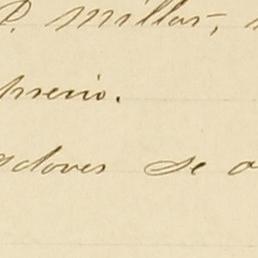 P. Millar,
precio.
gdores se o